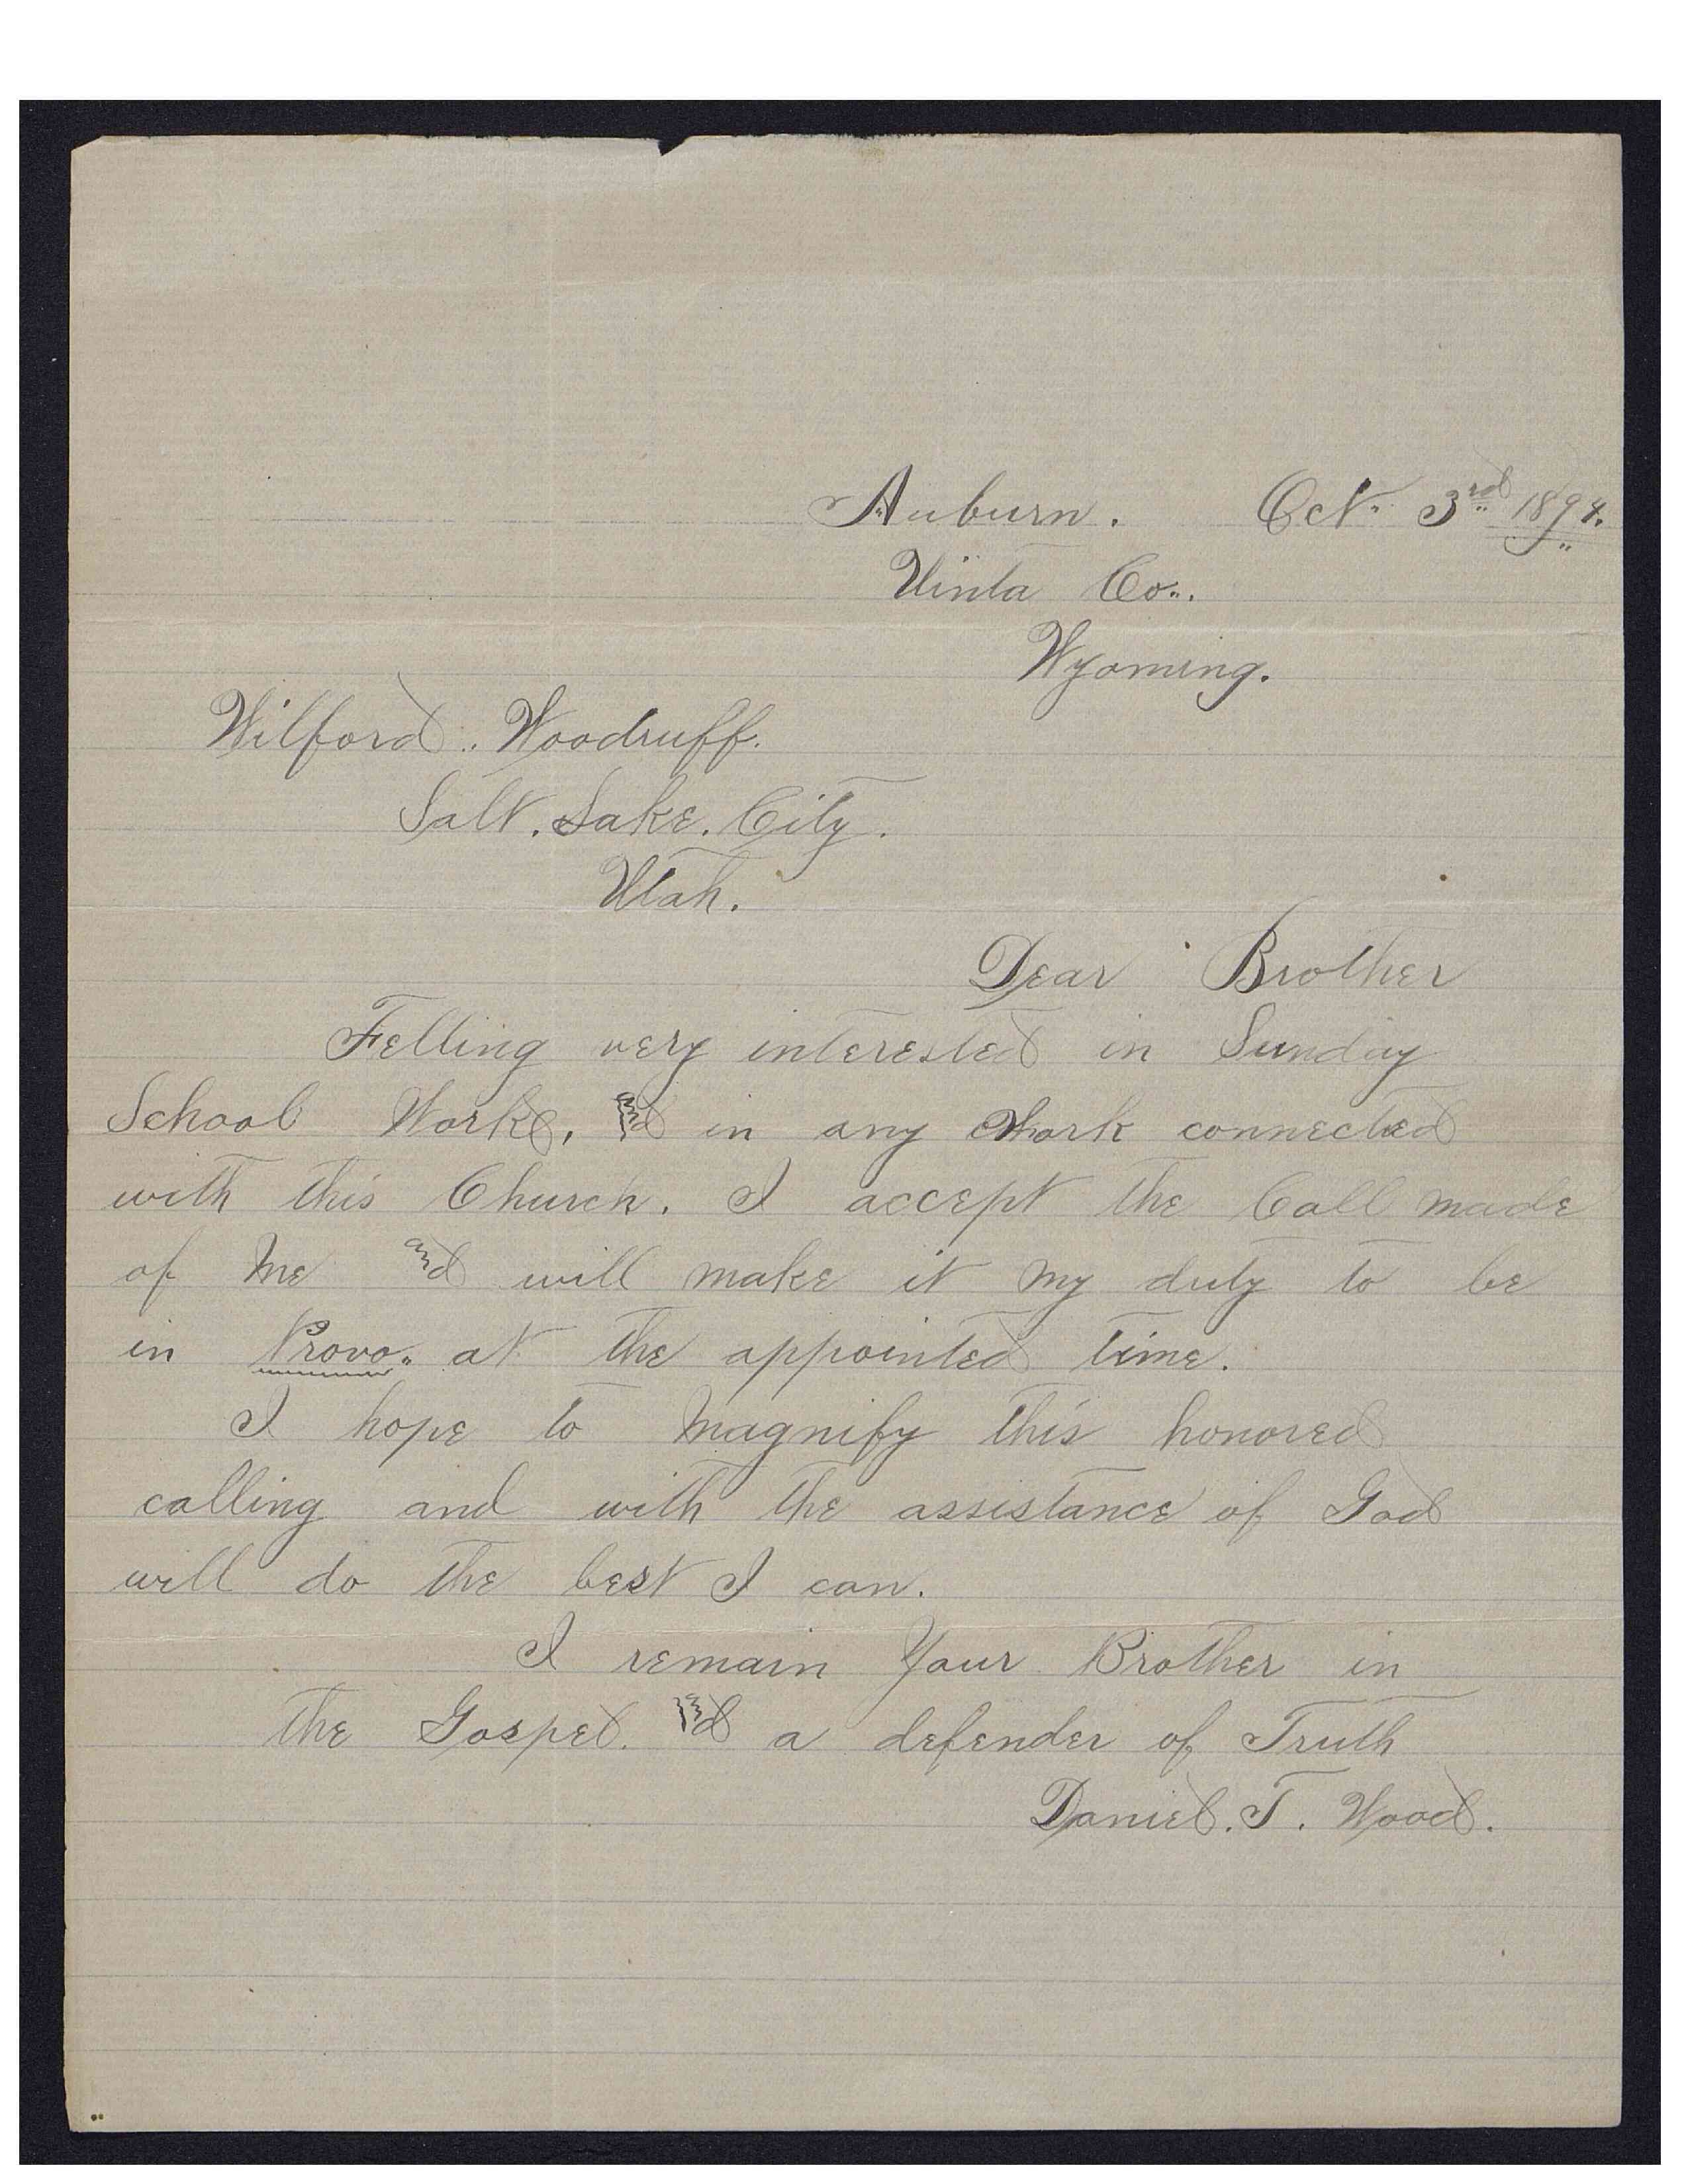 Auburn. Oct. 3rd 1894.
Uinta Co..
Wyoming.
Wilford.. Woodruff.
Salt. Lake. City.
Utah.
Dear Brother
Felling very interested in Sunday
School Work, and in any work connected
with this Church. I accept the Call made
of Me and will make it my duty to be
in Provo.. at the appointed time.
I hope to magnify this honored
calling and with the assistance of God
will do the best I can.
I remain Your Brother in
the Gospel. and a defender of Truth
Daniel. T. Wood.